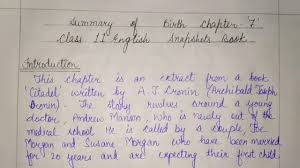 Summary of Birth Chapter-7
Class 11 English Snapshots Book
Introduction
This chapter is an extract from a book
'Citadel' written by A. J Cronin (Archibald Joseph
Cronin). The story revolves around a young
doctor, Andrew Manson, who is newly out of the
medical school. He is called by a couple, Joe
Morgan and Susane Morgan who have been married
for 20 years and are expecting their first child.